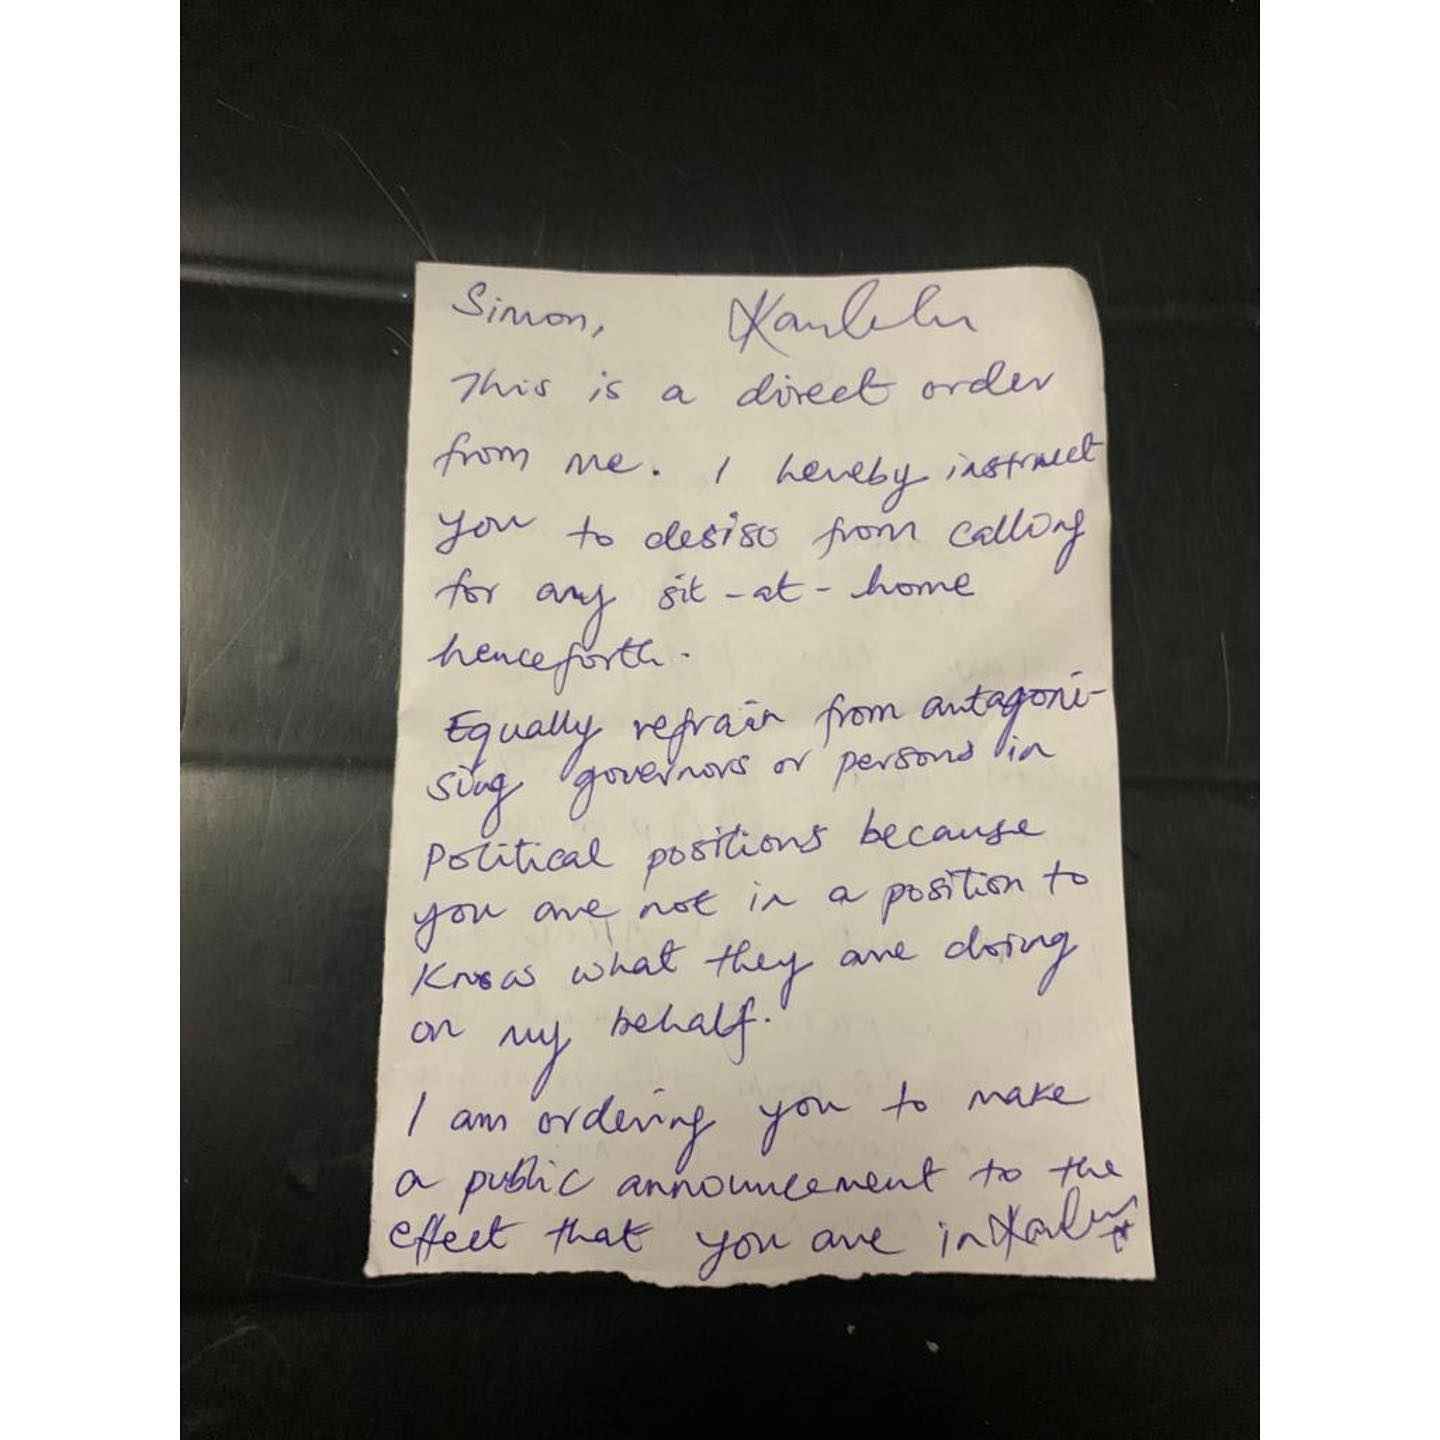 Simon,
This is a direct order
from me. I hereby instruct
you to desist from calling
for any sit-at-home
henceforth.
Equally refrain from antagoni-
sing governors or persons in
Political positions because
you are not in a position to
Know what they are doing
on my behalf.
I am ordering you to make
a public announcement to the
effect that you are in